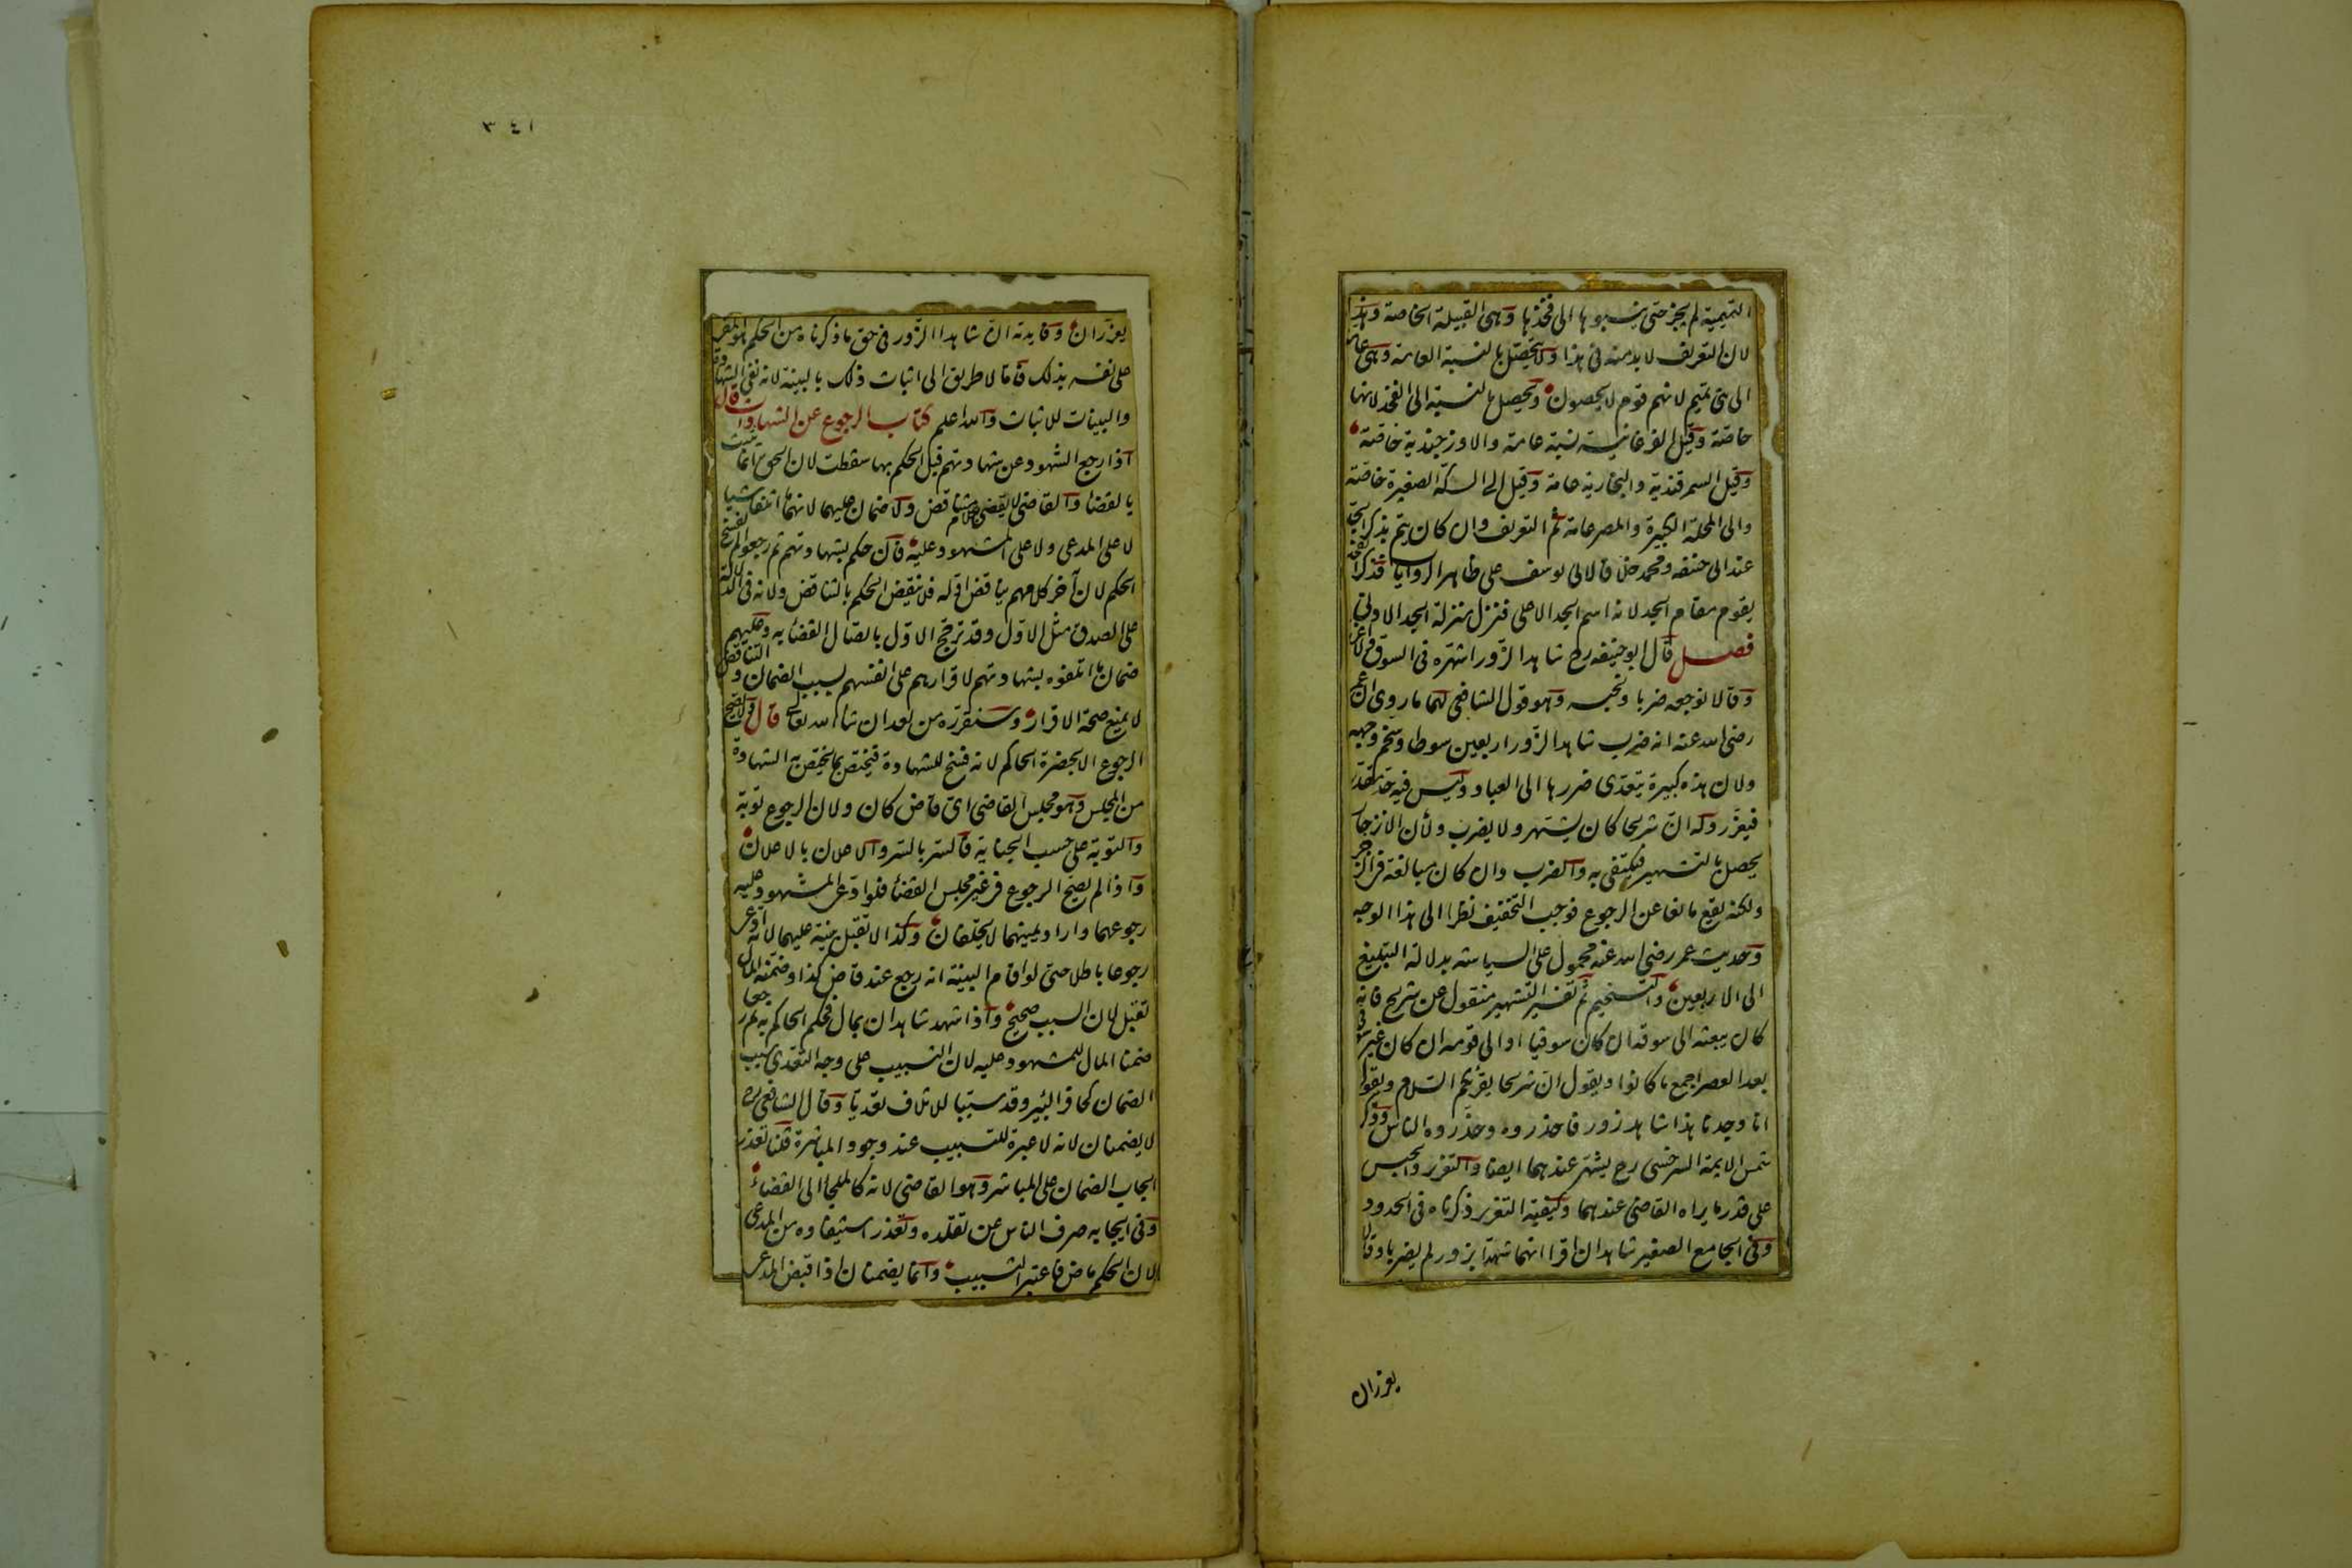 التميمية لم يجز حتى ينسبوها الى فخذها وهى القبيلة الخاصة وهذا
لان التعريف لا بد منه فى هذا ولا يحصل بالنسبة العامة وهى عامة
الى بنى تميم لانهم قوم لا يحصون ويحصل بالنسبة الى الفخذ لانها
خاصة وقيل الفرغانية نسبة عامة والاوزجندية خاصة
وقيل السمرقندية والبخارية عامة وقيل الى السكة الصغيرة خاصة
والى المحلة الكبيرة والمصر عامة ثم التعريف وان كان يتم بذكر الجد
عند ابى حنيفه ومحمد خلافا لابى يوسف على ظاهر الروايات فذكر الفخذ
يقوم مقام الجد لانه اسم الجد الاعلى فنزل منزلة الجد الادنى
فصل قال ابو حنيفه رح شاهد الزور اشهره فى السوق ولا اعزره
وقالا نوجعه ضربا ونحبسه وهو قول الشافعى لهما ما روى ان عمر
رضى الله عنه انه ضرب شاهد الزور اربعين سوطا وسخم وجهه
ولان هذه كبيرة يتعدى ضررها الى العباد وليس فيه حد مقدر
فيعزر وله ان شريحا كان يشهر ولا يضرب ولأن الانزجار
يحصل بالتشهير فيكتفى به والضرب وان كان مبالغة فى الزجر
ولكنه يقع مانعا عن الرجوع فوجب التخفيف نظرا الى هذا الوجه
وحديث عمر رضى الله عنه محمول على السياسة بدلالة التبليغ
الى الاربعين والتسخيم ثم تفسير التشهير منقول عن شريح فانه
كان يبعثه الى سوقه ان كان سوقيا او الى قومه ان كان غير سوقى
بعد العصر اجمع ما كانوا ويقول ان شريحا يقرئكم السلام ويقول
انا وجدنا هذا شاهد زور فاحذروه وحذروه الناس وذكر
شمس الايمة السرخسى رح يشهر عندهما ايضا والتعزير والحبس
على قدر ما يراه القاضى عندهما وكيفية التعزير ذكرناه فى الحدود
وفى الجامع الصغير شاهدان اقرا انهما شهدا بزور لم يضربا وقالا
يعزران
٣٤١
يعزران وفايدته ان شاهد الزور فى حق ما ذكرناه من الحكم هو المقر
على نفسه بذلك فاما لا طريق الى اثبات ذلك بالبينة لانه نفى الشهادة
والبينات للاثبات والله اعلم كتاب الرجوع عن الشهادات قال
اذا رجع الشهود عن شهادتهم قبل الحكم بها سقطت لان الحق انما يثبت
بالقضا والقاضى لا يقضى بكلام متناقض ولا ضمان عليهما لانهما ما اتلفا شيا
لا على المدعى ولا على المشهود عليه فان حكم بشهادتهم ثم رجعوا لم يفسخ
الحكم لان آخر كلامهم يناقض اوله فلا ينقض الحكم بالتناقض ولانه فى الدلالة
على الصدق مثل الاول وقد ترجح الاول باتصال القضاء به وعليهم
ضمان ما اتلفوه بشهادتهم لاقرارهم على انفسهم بسبب الضمان والتناقض
لا يمنع صحة الاقرار وسنقرره من بعد ان شا الله تعالى قال ولا يصح
الرجوع الا بحضرة الحاكم لانه فسخ للشهادة فيختص بما يختص به الشهادة
من المجلس وهو مجلس القاضى اى قاض كان ولان الرجوع توبة
والتوبة على حسب الجناية فالسر بالسر والاعلان بالاعلان
واذا لم يصح الرجوع فى غير مجلس القضاء فلو ادعى المشهود عليه
رجوعهما واراد يمينهما لا يحلفان وكذا لا تقبل بينة عليهما لانه ادعى
رجوعا باطلا حتى لو اقام البينة انه رجع عند قاض كذا وضمنه المال
تقبل لان السبب صحيح واذا شهد شاهدان بمال فحكم الحاكم به ثم رجعا
ضمنا المال للمشهود عليه لان التسبيب على وجه التعدى سبب
الضمان كحافر البئر وقد سببا للاتلاف تعديا وقال الشافعى رح
لا يضمنان لانه لا عبرة للتسبيب عند وجود المباشرة قلنا تعذر
ايجاب الضمان على المباشر وهو القاضى لانه كالملجا الى القضاء
وفى ايجابه صرف الناس عن تقلده وتعذر استيفاؤه من المدعى
لان الحكم ماض فاعتبر التسبيب وانما يضمنان اذا قبض المدعى